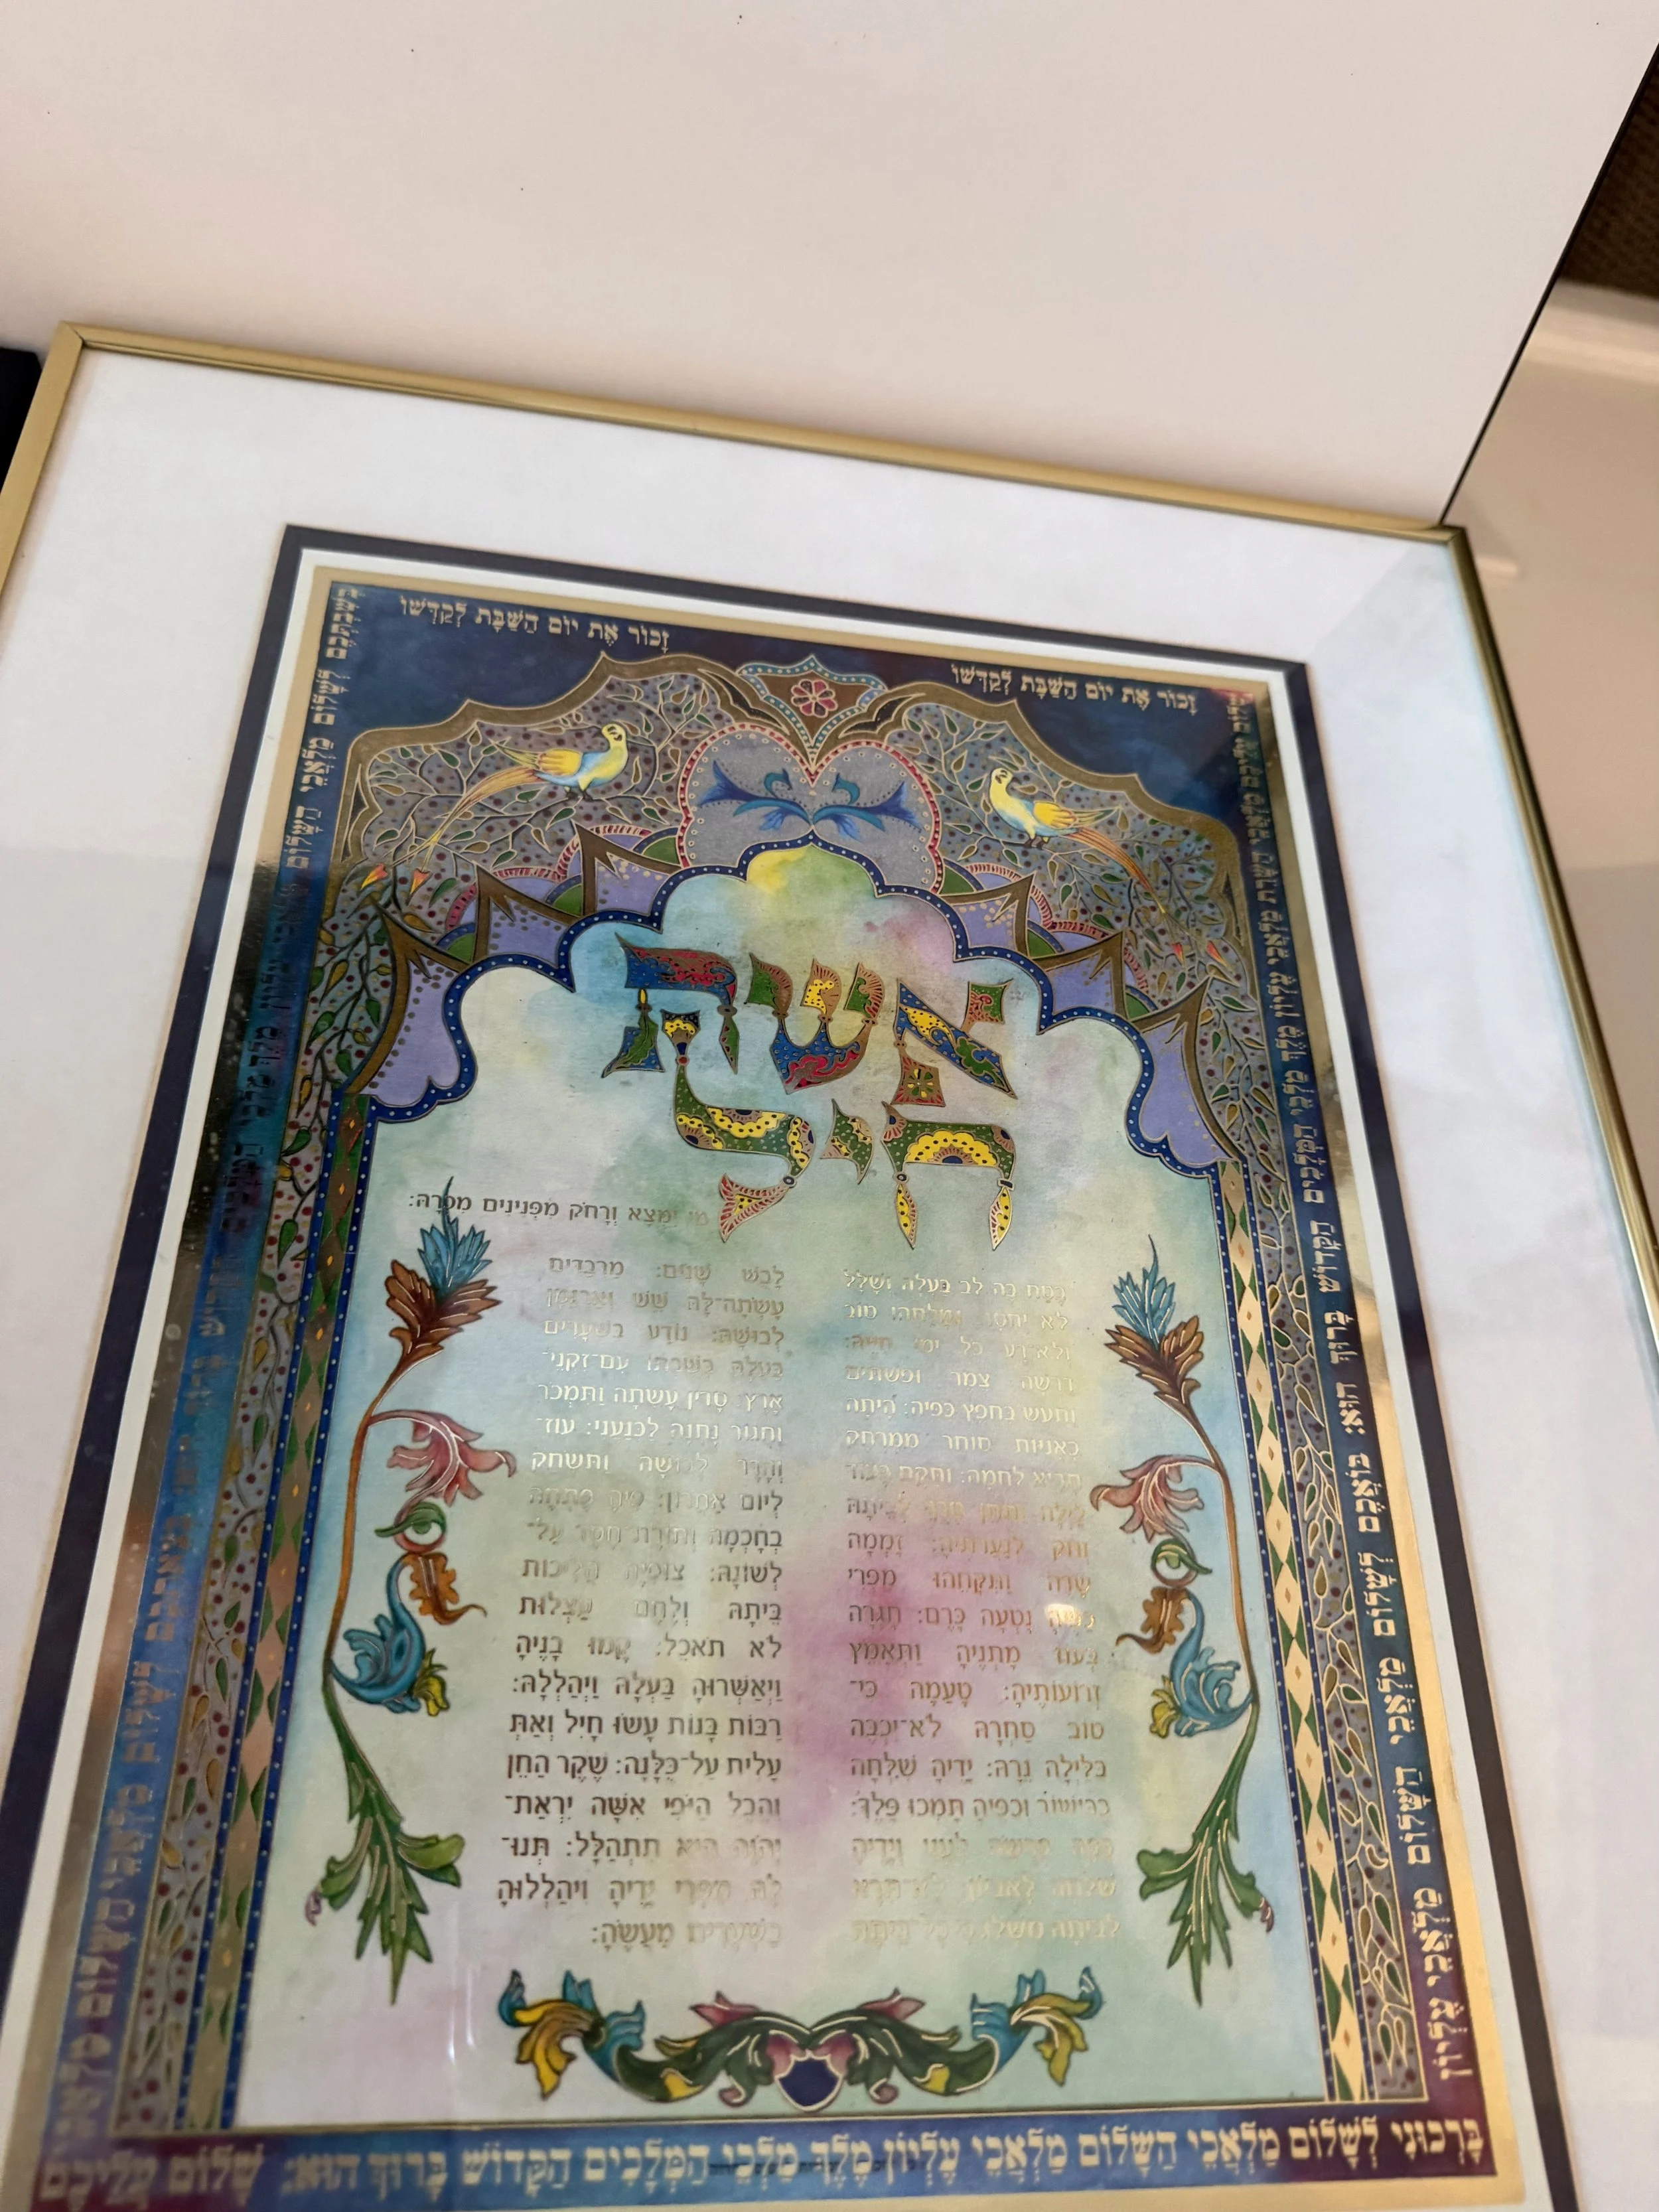 זָכוֹר אֶת יוֹם הַשַּׁבָּת לְקַדְּשׁוֹ
זָכוֹר אֶת יוֹם הַשַּׁבָּת לְקַדְּשׁוֹ
אשה
חיל
מי ימצא וְרָחֹק מִפְּנִינִים מִכְרָהּ:
בָּטַח בָּהּ לֵב בַּעְלָהּ וְשָׁלָל
לֹא יֶחְסָר: טוֹב
וְלֹא רָע כֹּל יְמֵי חַיֶּיהָ:
דָּרְשָׁה צֶמֶר וּפִשְׁתִּים
וַתַּעַשׂ בְּחֵפֶץ כַּפֶּיהָ: הָיְתָה
כָּאֳנִיּוֹת סוֹחֵר מִמֶּרְחָק
תָּבִיא לַחְמָהּ: וַתָּקָם בְּעוֹד
לַיְלָה וַתִּתֵּן טֶרֶף לְבֵיתָהּ
וְחֹק לְנַעֲרֹתֶיהָ: זָמְמָה
שָׂדֶה וַתִּקָּחֵהוּ מִפְּרִי
כַפֶּיהָ נָטְעָה כָּרֶם: חָגְרָה
בְּעוֹז מָתְנֶיהָ וַתְּאַמֵּץ
זְרוֹעוֹתֶיהָ: טָעֲמָה כִּי־
טוֹב סַחְרָהּ לֹא־יִכְבֶּה
בַּלַּיְלָה נֵרָהּ: יָדֶיהָ שִׁלְּחָה
בַכִּישׁוֹר וְכַפֶּיהָ תָּמְכוּ פָלֶךְ:
כַּפָּהּ פָּרְשָׂה לֶעָנִי וְיָדֶיהָ
שִׁלְּחָה לָאֶבְיוֹן לֹא־תִירָא
לְבֵיתָהּ מִשָּׁלֶג כִּי כָל־בֵּיתָהּ
לָבֻשׁ שָׁנִים: מַרְבַדִּים
עָשְׂתָה־לָּהּ שֵׁשׁ וְאַרְגָּמָן
לְבוּשָׁהּ: נוֹדָע בַּשְּׁעָרִים
בַּעְלָהּ בְּשִׁבְתּוֹ עִם־זִקְנֵי־
אָרֶץ: סָדִין עָשְׂתָה וַתִּמְכֹּר
וַחֲגוֹר נָתְנָה לַכְּנַעֲנִי: עוֹז־
וְהָדָר לְבוּשָׁהּ וַתִּשְׂחַק
לְיוֹם אַחֲרוֹן: פִּיהָ פָּתְחָה
בְחָכְמָה וְתוֹרַת חֶסֶד עַל־
לְשׁוֹנָהּ: צוֹפִיָּה הֲלִיכוֹת
בֵּיתָהּ וְלֶחֶם עַצְלוּת
לֹא תֹאכֵל: קָמוּ בָנֶיהָ
וַיְאַשְּׁרוּהָ בַּעְלָהּ וַיְהַלְלָהּ:
רַבּוֹת בָּנוֹת עָשׂוּ חָיִל וְאַתְּ
עָלִית עַל־כֻּלָּנָה: שֶׁקֶר הַחֵן
וְהֶבֶל הַיֹּפִי אִשָּׁה יִרְאַת־
יְהֹוָה הִיא תִתְהַלָּל: תְּנוּ־
לָהּ מִפְּרִי יָדֶיהָ וִיהַלְלוּהָ
בַשְּׁעָרִים מַעֲשֶׂהָ:
שָׁלוֹם עֲלֵיכֶם מַלְאֲכֵי הַשָּׁרֵת מַלְאֲכֵי עֶלְיוֹן מֶלֶךְ מַלְכֵי הַמְּלָכִים הַקָּדוֹשׁ בָּרוּךְ הוּא: בּוֹאֲכֶם לְשָׁלוֹם מַלְאֲכֵי הַשָּׁלוֹם מַלְאֲכֵי עֶלְיוֹן
בָּרְכוּנִי לְשָׁלוֹם מַלְאֲכֵי הַשָּׁלוֹם מַלְאֲכֵי עֶלְיוֹן מֶלֶךְ מַלְכֵי הַמְּלָכִים הַקָּדוֹשׁ בָּרוּךְ הוּא: שָׁלוֹם עֲלֵיכֶם
בּוֹאֲכֶם לְשָׁלוֹם מַלְאֲכֵי הַשָּׁלוֹם מַלְאֲכֵי
בְּשִׁבְתְּכֶם לְשָׁלוֹם מַלְאֲכֵי הַשָּׁלוֹם מַלְאֲכֵי עֶלְיוֹן